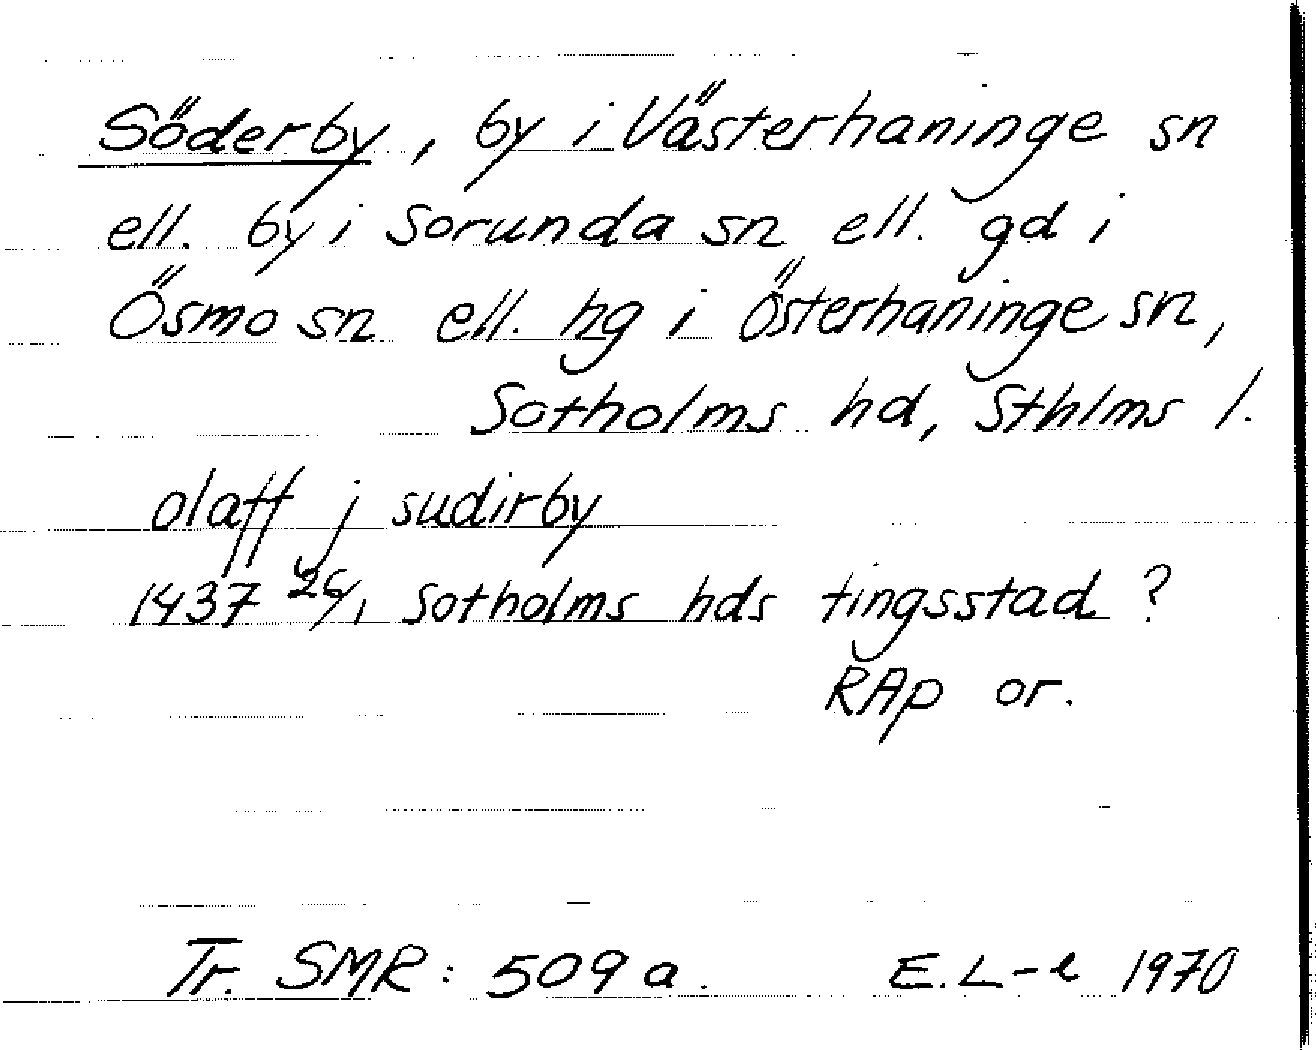 Söderby, by i Västerhaninge sn
ell. by i Sorunda sn ell. gd i
Ösmo sn ell. hg i Österhaninge sn,
Sotholms hd, Sthlms l.
olaff j sudirby
1437 26/1 Sotholms hds tingsstad ?
RAp or.
Tr. SMR: 509 a. E.L-e 1970